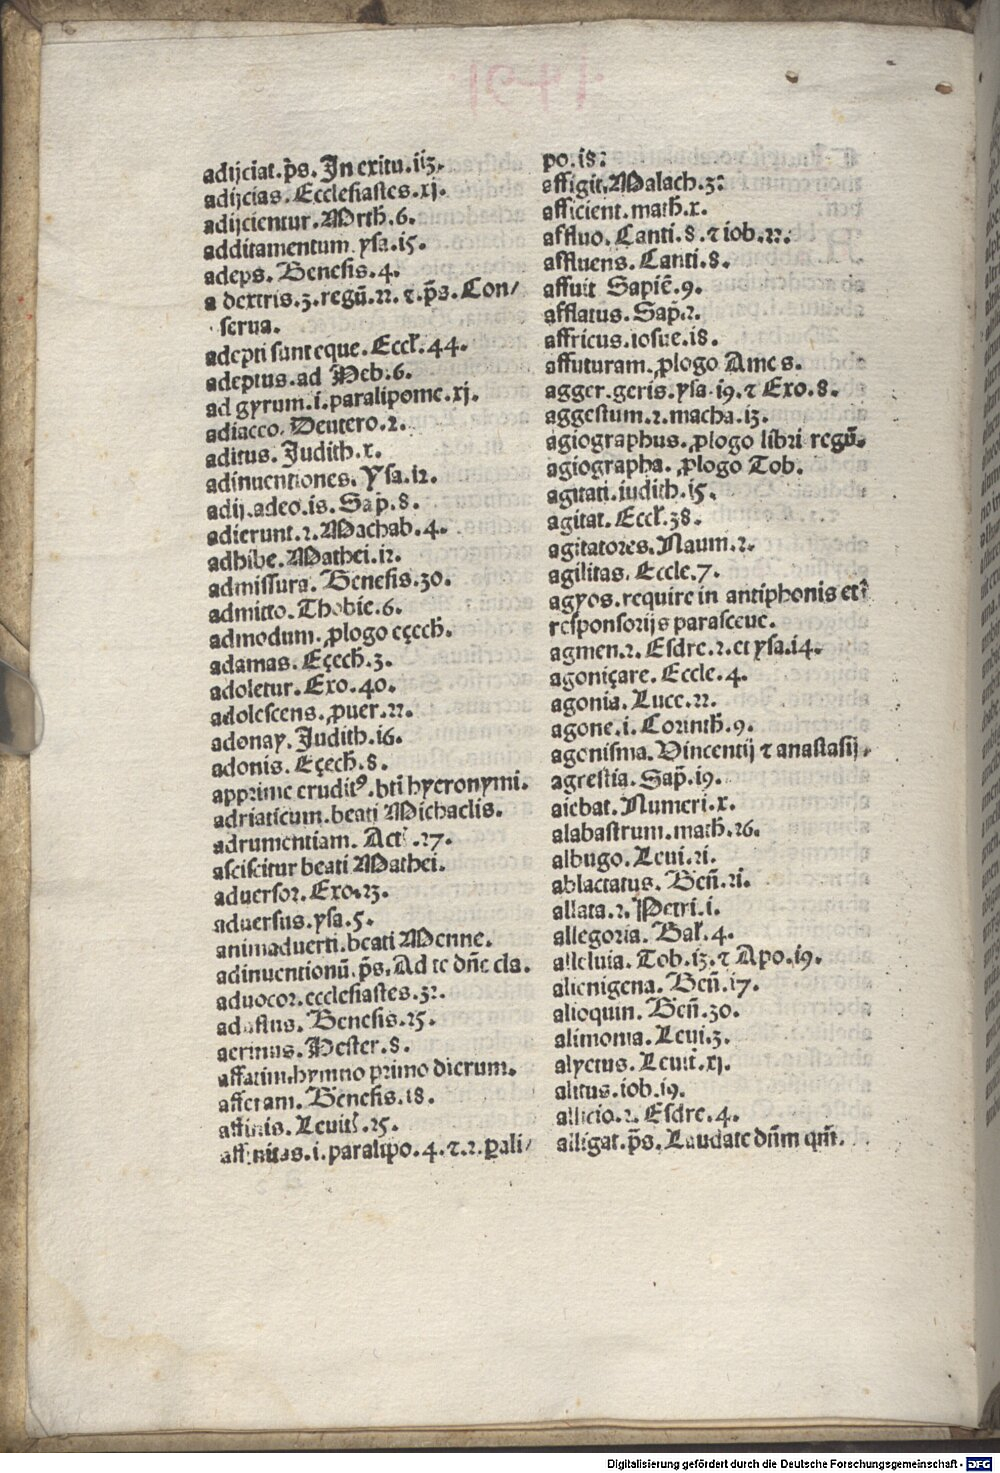 adijciat.p̄s. In exitu.iiz.
adijcias. Ecclesiastes.xj.
adijcientur. Mrth̄.6.
additamentum ysa.i5.
adeps. Genesis.4.
a dextris.3.regū.22. ⁊.p̄s. Con/
serua.
adepti sunt eque. Eccl̄.44.
adeptus.ad Heb.6.
ad gyrum.i.paralipome.xj.
adiacco. Deutero.2.
aditus. Judith.x.
adinuentiones. Ysa.12.
adij.adeo.is. Sap.8.
adierunt.2. Machab.4.
adhibe. Mathei.12.
admissura. Genesis.30.
admitto. Thobie.6.
admodum.ꝓlogo eçech̄.
adamas. Eçech̄.3.
adoletur. Exo.40.
adolescens.ꝓuer.22.
adonay. Judith.i6.
adonis. Eçech̄.8.
apprime erudit⁹.bti hyeronymi.
adriaticum.beati Michaelis.
adrumentiam. Act .27.
asciscitur beati Mathei.
aduersor. Exo.23.
aduersus.ysa.5.
animaduerti.beati Menne.
adinuentionū.p̄s. Ad te dn̄e cla.
aduocor.ecclesiastes.32.
adustus. Genesis.25.
aermus. Hester.8.
affatim.hymno primo dierum.
afferam. Genesis.18.
affinis. Leuit̄.25.
affinitas.i.paralipo.4.⁊.2.ꝑali/
po.i8:
affigit. Malach.3:
afficient.math̄.x.
affluo. Canti.8.⁊ iob.22.
affluens. Canti.8.
affuit Sapiē.9.
afflatus. Sap̄.2.
affricus.iosue.i8.
affuturam.ꝓlogo Ames.
agger.geris.ysa.i9.⁊ Exo.8.
aggestum.2.macha.i3.
agiographus.ꝓlogo libri regū.
agiographa.ꝓlogo Tob.
agitati.iudith.i5.
agitat. Eccl̄.38.
agitatores. Naum.2.
agilitas. Eccle.7.
agyos.require in antiphonis et
responsorijs parasceue.
agmen.2. Esdre.2.et ysa.i4.
agoniçare. Eccle.4.
agonia. Luce.22.
agone.i. Corinth̄.9.
agonisma. Vincentij ⁊ anastasij.
agrestia. Sap̄.i9.
aiebat. Numeri.x.
alabastrum.math̄.26.
albugo. Leui.2i.
ablactatus. Gen̄.2i.
allata.2. Petri.i.
allegoria. Gal̄.4.
alleluia. Tob.i3.⁊ Apo.i9.
alienigena. Gen̄.i7.
alioquin. Gen̄.30.
alimonia. Leui.3.
alyetus. Leuit̄.xj.
alitus.iob.i9.
allicio.2. Esdre.4.
alligat.p̄s. Laudate dn̄m qm̄.
Digitalisierung gefördert durch die Deutsche Forschungsgemeinschaft - DFG